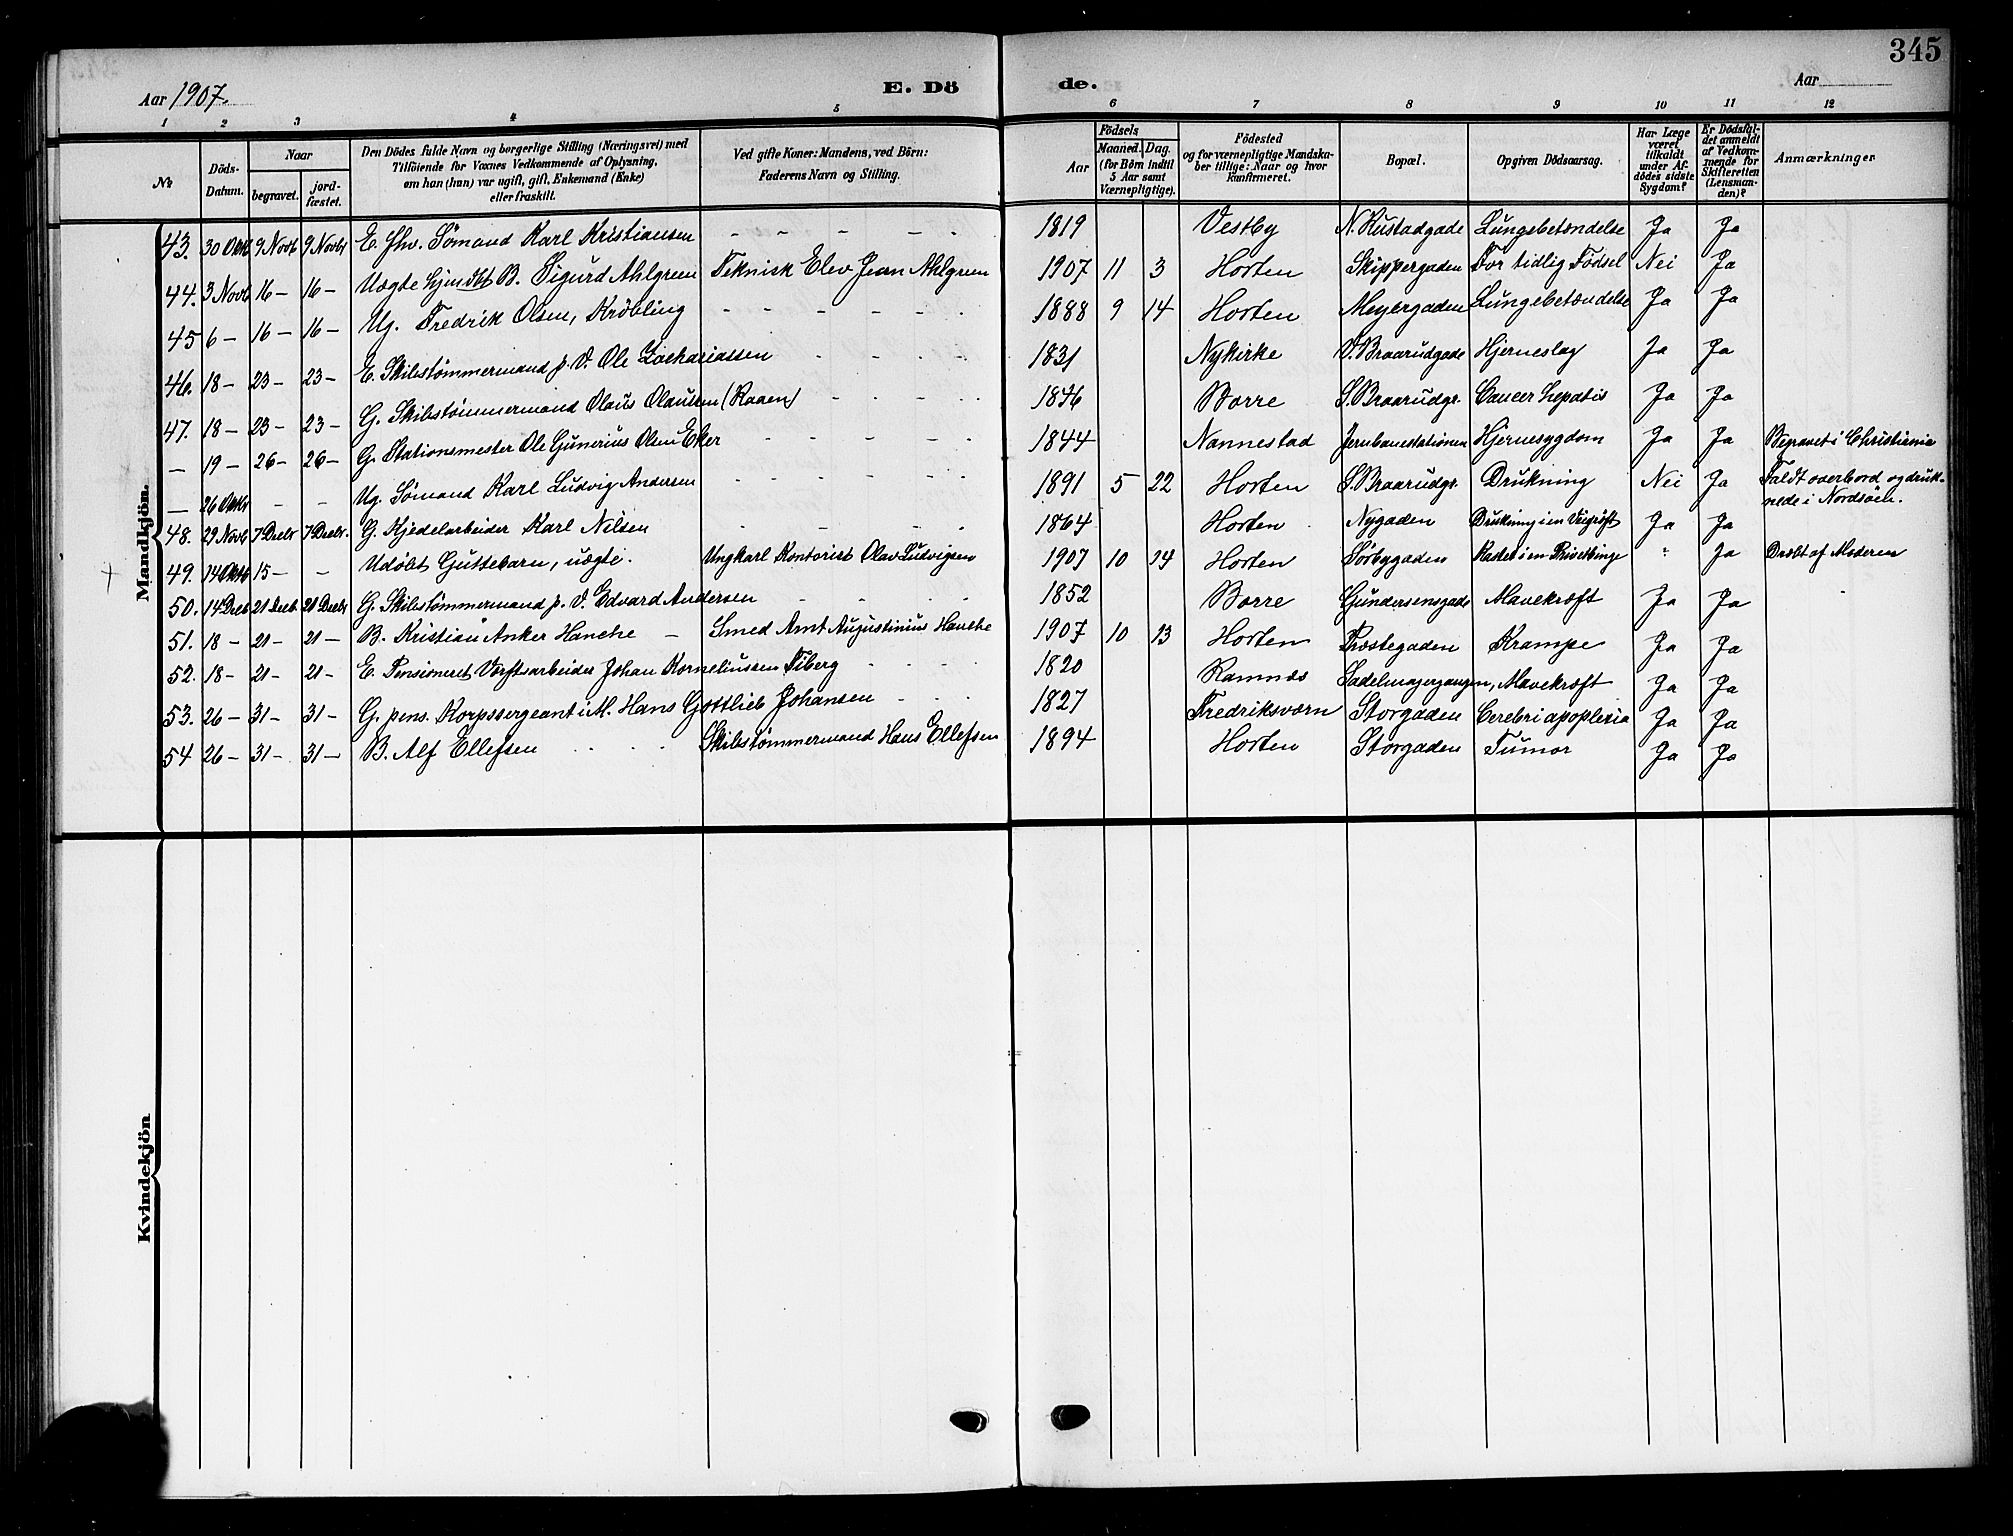 345
Aar 1907.
E. Dö
de.
Aar
1 2 3 4 5 6 7 8 9 10 11 12
№
Döds-Datum.
Naar
begravet.
jord-fæstet.
Den Dödes fulde Navn og borgerlige Stilling (Næringsvei) med
Tilföiende for Voxnes Vedkommende af Oplysning,
om han (hun) var ugift, gift, Enkemand (Enke)
eller fraskilt.
Ved gifte Koner: Mandens, ved Börn:
Faderens Navn og Stilling.
Födsels
Aar
Maaned. Dag.
(for Börn indtil
5 Aar samt
Værnepligtige).
Födested
og for værnepligtige Mandska-
ber tillige: Naar og hvor
konfirmeret.
Bopæl.
Opgiven Dödsaarsag.
Har Læge
været
tilkaldt
under Af-
dödes sidste
Sygdom?
Er Dödsfal-
det anmeldt
af Vedkom-
mende for
Skifteretten
(Lensman-
den)?
Anmærkninger
Mandkjön.
43. 30 Oktb 9 Novb 9 Novbr E. fhv. Sømand Karl Kristiansen - - - - - 1819 Vestby N. Rustadgade Lungebetændelse Ja Ja
44. 3 Novb 16 - 16 - Uægte hjemdbt B. Sigurd Ahlgreen Teknisk Elev Jean Ahlgreen 1907 11 3 Horten Skippergaden For tidlig Födsel Nei Ja
45 6 - 16 - 16 - Ug. Fredrik Olsen, Kröbling - - - - - 1888 9 14 Horten Meyergaden Lungebetændelse Ja Ja
46. 18 - 23 - 23 - E. Skibstømmermand p. V. Ole Zachariassen - - - 1831 Nykirke V. Braarudgade Hjerneslag Ja Ja
47. 18 - 23 - 23 - G. Skibstømmermand Olaus Olaussen (Raaen) - - - 1836 Borre S. Braarudgr. Cancer hepatis Ja Ja
- 19 - 26 - 26 - G. Stationsmester Ole Gunerius Olsen Eker - - - - 1844 Nannestad Jernbanestationen Hjernesygdom Ja Ja Begravet i Christiania
- 26 Oktbr - - Ug. Sømand Karl Ludvig Andersen - - - - 1891 5 22 Horten S. Braarudgr. Drukning Nei Ja Faldt overbord og druk-
nede i Nordsöen.
48. 29 Novb 7 Decbr 7 Decbr. G. Kjedelarbeider Karl Nilsen - - - - 1864 Horten Nygaden Drukning i en Veigröft Ja Ja
49. 14 Oktb 15 - - Udöbt Guttebarn, uægte. Ungkarl Kontorist Olav Ludvigsen 1907 10 14 Horten Sørbygaden Kastet i en Privetbinge " Ja Dræbt af Moderen
50. 14 Decb 21 Decb. 21 Decbr G. Skibstømmermand p. V. Edvard Andersen - - - 1852 Borre Gundersensgade Mavekræft Ja Ja
51. 18 - 21 - 21 - B. Kristian Anker Hanche - Smed Arnt Augustinius Hanche 1907 10 13 Horten Præstegaden Krampe Ja Ja
52. 18 - 21 - 21 - E. Pensioneret Værftsarbeider Johan Korneliussen Fiberg - - - 1820 Ramnes Sadelmagergangen, Mavekræft Ja Ja
53. 26 - 31 - 31 - G. pens. Korpssergeant i M. Hans Gottlieb Johansen - - - 1827 Fredriksværn Storgaden Cerebri apoplexia Ja Ja
54 26 - 31 - 31 - B. Alf Ellefsen - - - Skibstømmermand Hans Ellefsen 1894 Horten Storgaden Tumor Ja Ja
Kvindekjön